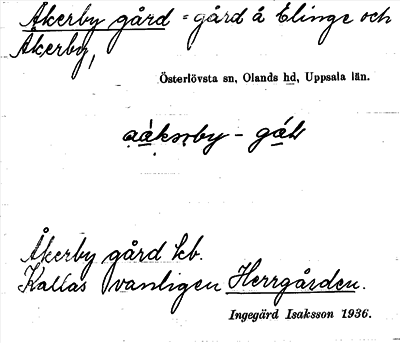 Åkerby gård = gård å Elinge och
Åkerby,
Österlövsta sn, Olands hd, Uppsala län.
Åkerby gård kb.
Kallas vanligen Herrgården.
Ingegärd Isaksson 1936.